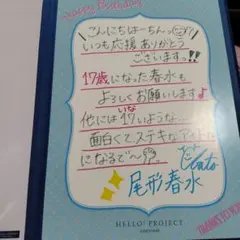 Happy Birthday
こんにちはーちんっ
いつも応援ありがとう
ございますっ!!
17歳になった春水も
よろしくお願いします♪
いな
他には17いような…
面白くてステキなアイドル
になるで〜
尾形春水
HELLO! PROJECT